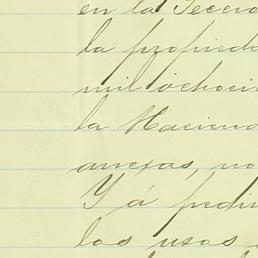 en la Secc
la propieda
mil ochoci
la Haciend
anexas, no
Y á pedim
los usos